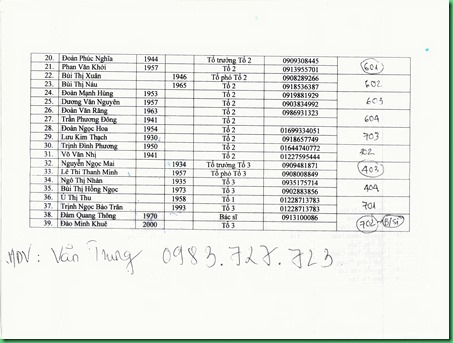 20. Đoàn Phúc Nghĩa 1944 Tổ trưởng Tổ 2 0909308445
21. Phan Văn Khởi 1957 Tổ 2 0913955701 601
22. Bùi Thị Xuân 1946 Tổ phó Tổ 2 0908289266
23. Bùi Thị Náu 1965 Tổ 2 0918536387 602
24. Đoàn Mạnh Hùng 1953 Tổ 2 0919881929
25. Dương Văn Nguyên 1957 Tổ 2 0903834992 603
26. Đoàn Văn Răng 1963 Tổ 2 0986931323
27. Trần Phương Đông 1941 Tổ 2 604
28. Đoàn Ngọc Hoa 1954 Tổ 2 01699334051
29. Lưu Kim Thạch 1930 Tổ 2 0918657749 703
30. Trịnh Đình Phương 1950 Tổ 2 01644740772
31. Võ Văn Nhị 1941 Tổ 2 01227595444 702
32. Nguyễn Ngọc Mai 1934 Tổ trưởng Tổ 3 0909481871
33. Lê Thị Thanh Minh 1957 Tổ phó Tổ 3 0908008849 403
34. Ngô Thị Nhàn 1935 Tổ 3 0935175714
35. Bùi Thị Hồng Ngọc 1973 Tổ 3 0902883856 404
36. Ư Thị Thu 1958 Tổ 1 01228713783
37. Trịnh Ngọc Bảo Trân 1993 Tổ 3 01228713783 701
38. Đàm Quang Thông 1970 Bác sĩ 0913100086
39. Đào Minh Khuê 2000 Tổ 3 702
HDV: Văn Trung 0983.727.723